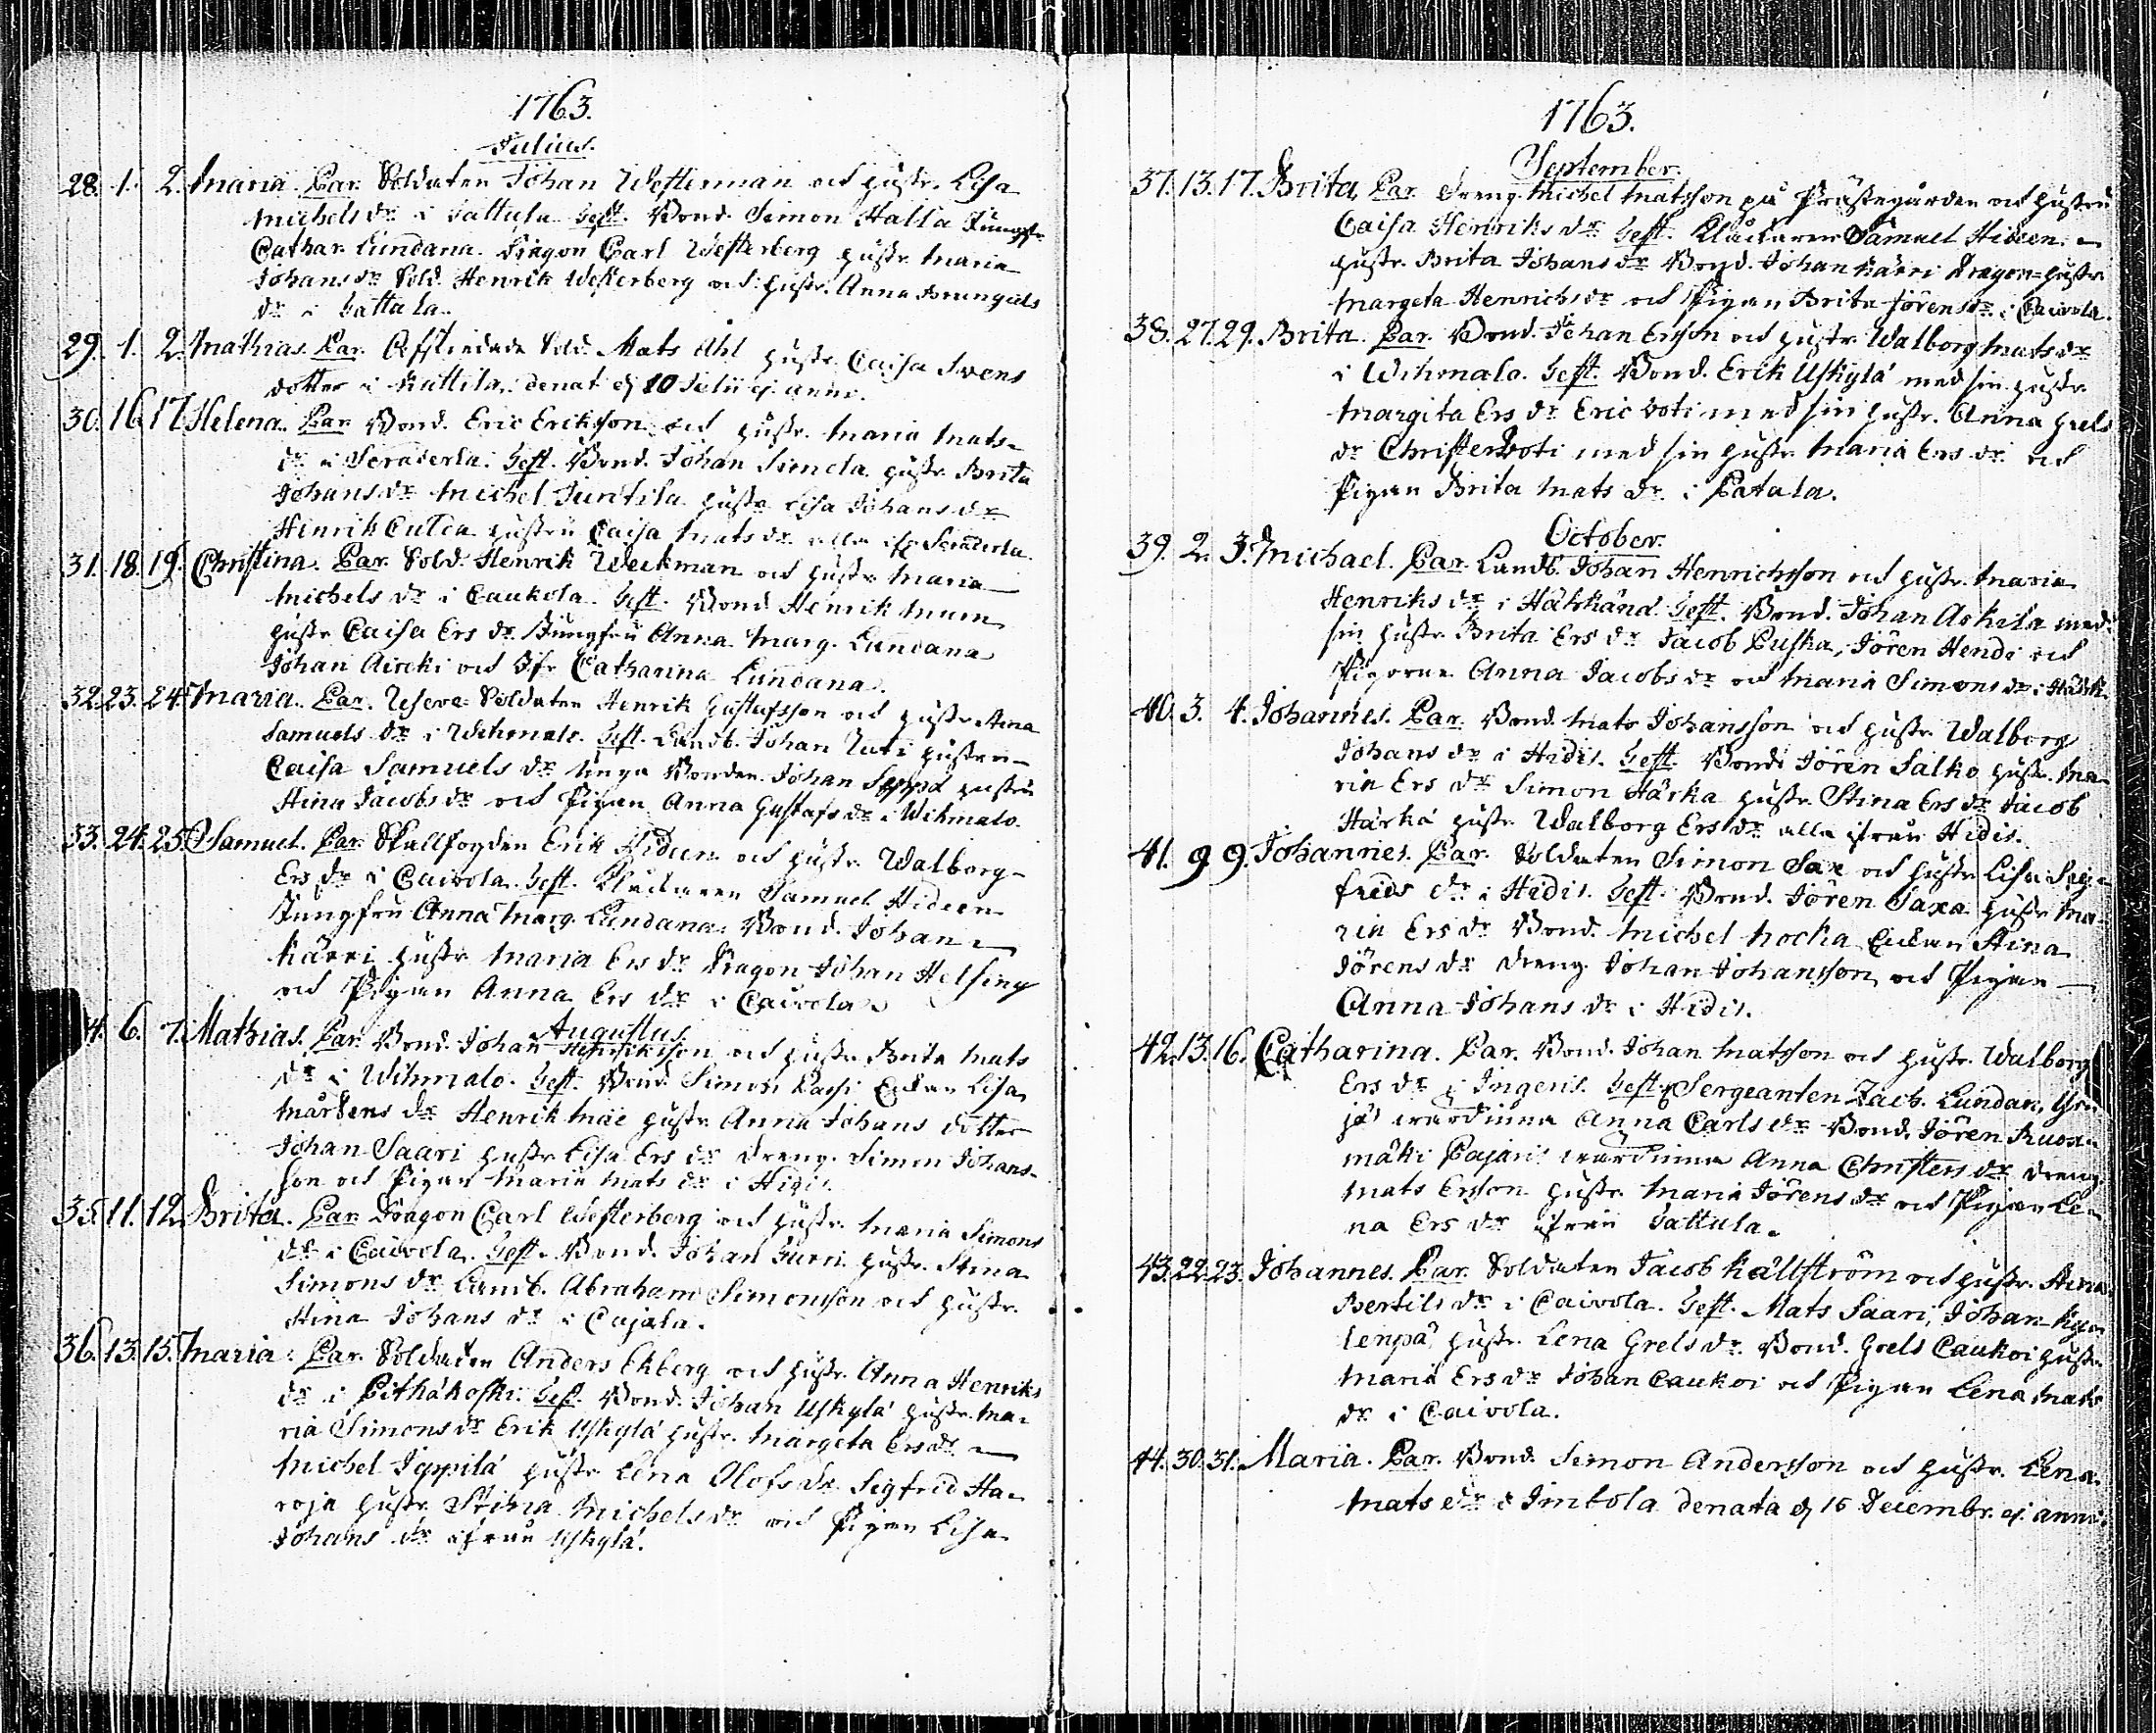 1763.
Julius.
28. 1. 2. Maria. Par. Soldaten Johan Westerman och hustr. Lisa
Michels dr i Sattula. Test. Bond. Simon Halla Jungfr.
Cathar. Lundana. Dragon Carl Westerberg hustr. Maria
Johans dr Sold. Henrik Westerberg och hustr. Anna
dr i Sattula.
29. 1. 2. Mathias. Par. Afskedade Sold. Mats Ahl hustr. Caisa Svens
dotter i Kattila. denat. d 10 Julii ej. anni.
30. 16. 17. Helena. Par. Bond. Eric Eriksson och hustr. Maria Mats
dr i Test. Bond. Johan Simola hustr. Brita
Johans dr Michel Juntila hustr. Lisa Johans dr
Hinrik hustru Caisa Mats dr alla
31. 18. 19. Christina. Par. Sold. Henrik Weckman och hustr. Maria
Michels dr i Caukola. Test. Bond. Henrik
hustr. Caisa Ers dr Jungfru Anna Marg. Lundana
Johan och Jfr. Catharina Lundana.
32. 23. 24. Maria. Par. Reserve-Soldaten Henrik Gustafsson och hustr. Stina
Samuels dr i Wihmalo. Test. Landb. Johan hustru
Caisa Samuels dr unga Bonden Johan Seppä hustru
Stina Jacobs dr och Pigan Anna Gustafs dr i Wihmalo.
33. 24. 25. Samuel. Par. Skallfogden Erik Hideen och hustr. Walborg
Ers dr i Caivola. Test. Klockaren Samuel Hideen
Jungfru Anna Marg. Lundana. Bond. Johan
Kärri hustr. Maria Ers dr Dragon Johan Helsing
och Pigan Anna Ers dr i Caivola.
Augustus.
4. 6. 7. Mathias. Par. Bond. Johan Henriksson och hustr. Brita Mats
dr i Wihmalo. Test. Bond. Simon Enkan Lisa
Mårtens dr Henrik hustr. Anna Johans dotter
Johan Saari hustr. Lisa Ers dr Dreng. Simon Johans-
son och Pigan Maria Mats dr i Hidis.
35. 11. 12. Brita. Par. Dragon Carl Westerberg och hustr. Maria Simons
dr i Caivola. Test. Bond. Johan hustr. Stina
Simons dr Landb. Abraham Simonsson och hustr.
Stina Johans dr i Cajala.
36. 13. 15. Maria. Par. Soldaten Anders Ekberg och hustr. Anna Henriks
dr i Pithäkoski. Test. Bond. Johan Uskylä hustr. Ma-
ria Simons dr Erik Uskylä hustr. Margeta Ers dr
Michel Seppilä hustr. Lena Olofs dr Sigfrid Ha-
roja hustr. Stina Michels dr och Pigan Lisa
Johans dr ifrån Uskylä.
1763.
September.
37. 13. 17. Brita. Par. Dreng. Michel Matsson på Prästegården och hustru
Caisa Henriks dr Test. Klockaren Samuel Hideen
hustr. Brita Johans dr Bond. Johan Kärri Dragon-hustr.
Margeta Henrichs dr och Pigan Brita Jörens dr i Caivola.
38. 27. 29. Brita. Par. Bond. Johan Ersson och hustr. Walborg Mats dr
i Wihmalo. Test. Bond. Erik Uskylä med sin hustr.
Margita Ers dr Eric Voti med sin hustr. Anna Grels
dr Christer Voti med sin hustr. Maria Ers dr och
Pigan Brita Mats dr i Patala.
October.
39. 2. 3. Michael. Par. Landb. Johan Henrichsson och hustr. Maria
Henriks dr i Test. Bond. Johan Askila med
sin hustr. Brita Ers dr Jacob Puska, Jören Hendi och
Pigorne Anna Jacobs dr och Maria Simons dr i
40. 3. 4. Johannes. Par. Bond. Mats Johansson och hustr. Walborg
Johans dr i Hidis. Test. Bond. Jören Salko hustr. Ma-
ria Ers dr Simon Härkä hustr. Stina Ers dr Jacob
Härkä hustr. Walborg Ers dr alla ifrån Hidis.
41. 9 9. Johannes. Par. Soldaten Simon Sax och hustr. Lisa Sig-
frids dr i Hidis. Test. Bond. Jören Saxa hustr. Ma-
ria Ers dr Bond. Michel Enkan Stina
Jörens dr Dreng Johan Johansson och Pigan
Anna Johans dr i Hidis.
42. 13. 16. Catharina. Par. Bond. Johan Matsson och hustr. Walborg
Ers dr i Ingeris. Test. Sergeanten Zach. Lundan,
wärdinna Anna Carls dr Bond. Jören Ruoa-
mäki Pajari wärdinna Anna Christers dr Dreng.
Mats Ersson hustr. Maria Jörens dr och Pigan Le-
na Ers dr ifrån Sattula.
43. 22. 23. Johannes. Par. Soldaten Jacob Källström och hustr. Stina
Bertils dr i Caivola. Test. Mats Saari, Johan
hustr. Lena Grels dr. Bond. Grels Caukoi hustr.
Maria Ers dr Johan Caukoi och Pigan Lena Mats
dr i Caivola.
44. 30. 31. Maria. Par. Bond. Simon Andersson och hustr. Lena
Mats dr i Imtola denata d 16 Decembr. ej. anni.